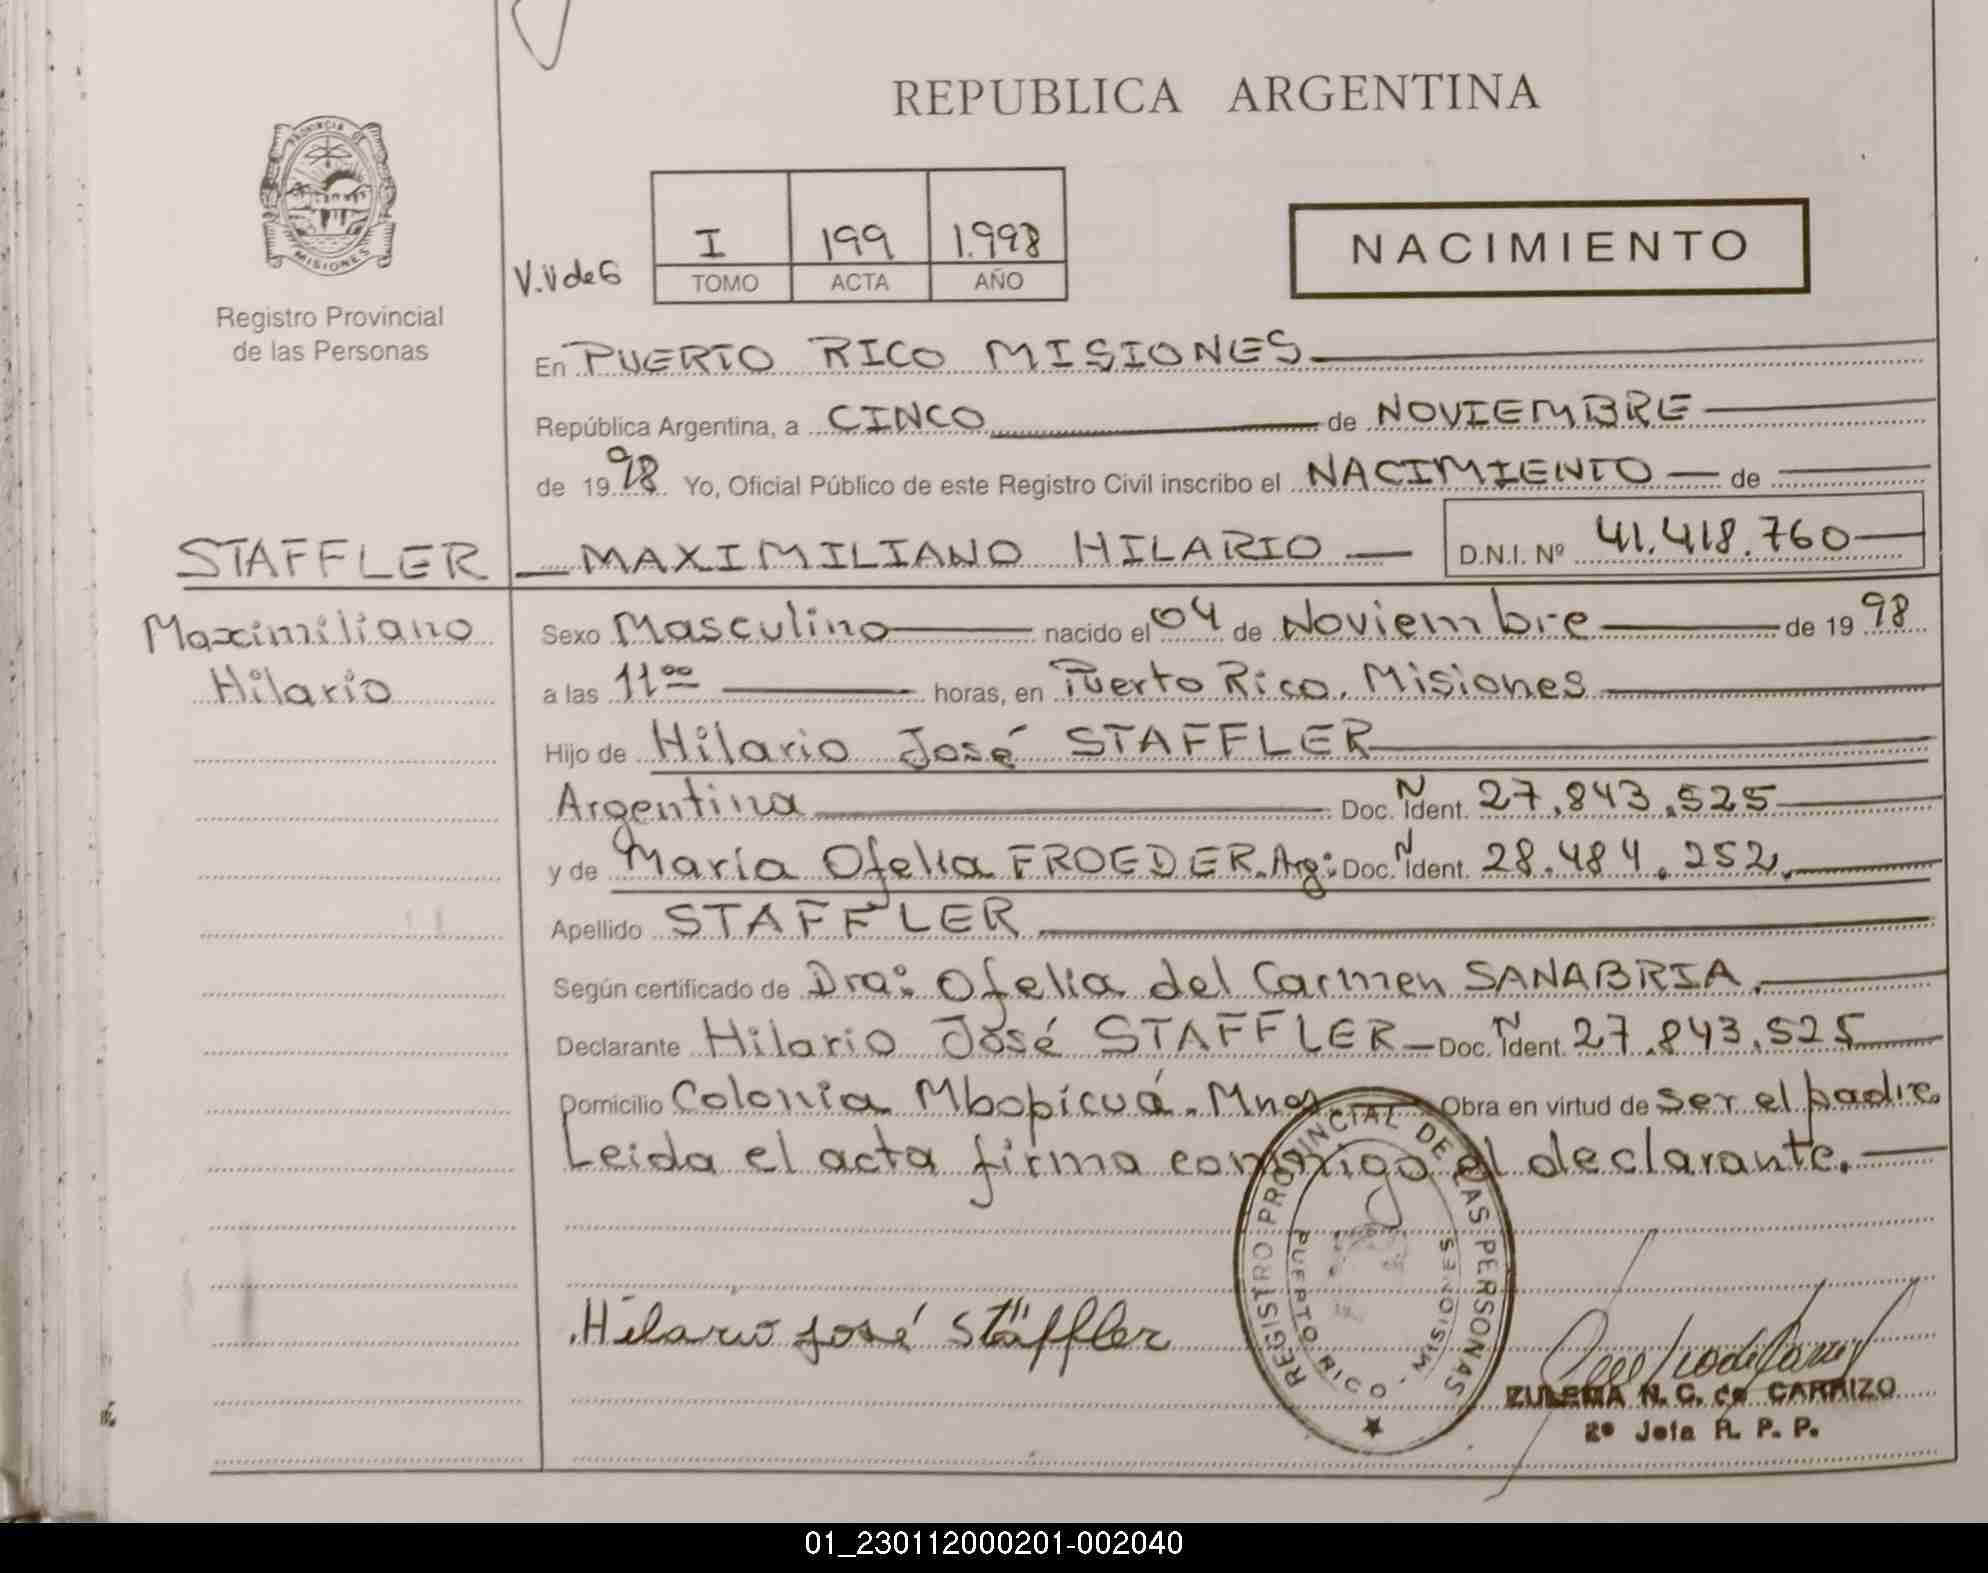 REPUBLICA ARGENTINA
PROVINCIA DE
MISIONES
Registro Provincial
de las Personas
V.V de G
I 199 1.998
TOMO ACTA AÑO
NACIMIENTO
En PUERTO RICO MISIONES
República Argentina, a CINCO de NOVIEMBRE
de 1998 Yo, Oficial Público de este Registro Civil inscribo el NACIMIENTO de
STAFFLER MAXIMILIANO HILARIO D.N.I. Nº 41.418.760
Maximiliano Sexo Masculino nacido el 04 de Noviembre de 1998
Hilario a las 11 00 horas, en Puerto Rico. Misiones
Hijo de Hilario José STAFFLER
Argentina Doc. Ñ Ident. 27.843.525
y de María Ofelia FROEDER. Arg: Doc. Ñ Ident. 28.484.252.
Apellido STAFFLER
Según certificado de Dra: Ofelia del Carmen SANABRIA.
Declarante Hilario José STAFFLER Doc. Ñ Ident. 27.843.525
Domicilio Colonia Mbopicuá. Mnes Obra en virtud de ser el padre
Leida el acta firma conmigo el declarante.
REGISTRO PROVINCIAL DE LAS PERSONAS
PUERTO RICO - MISIONES
Hilario José Stäffler
ZULEMA N. C. de CARRIZO
2º Jefa R. P. P.
01_230112000201-002040